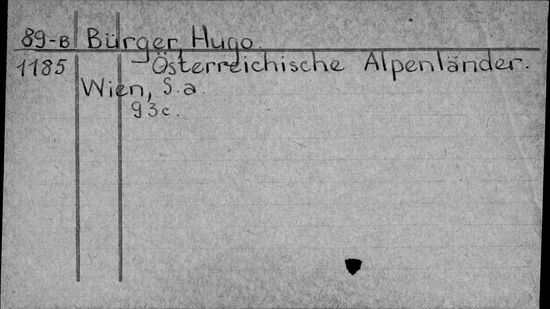 89-B Bürger Hugo.
1185 - Österreichische Alpenländer.
Wien, S.a.
93c.